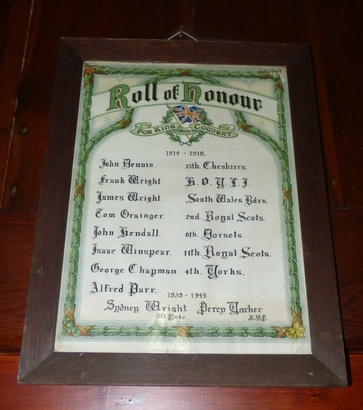 Roll of Honour
FOR KING AND COUNTRY
1914 - 1918.
John Dennis. 15th. Cheshires.
Frank Wright. K.O.Y.L.I.
James Wright. South Wales Bdrs.
Tom Grainger. 2nd. Royal Scots.
John Kendall. 6th. Dorsets.
Isaac Winspear. 11th. Royal Scots.
George Chapman 4th. Yorks.
Alfred Parr.
1939-1945
Sydney Wright Percy Yarker